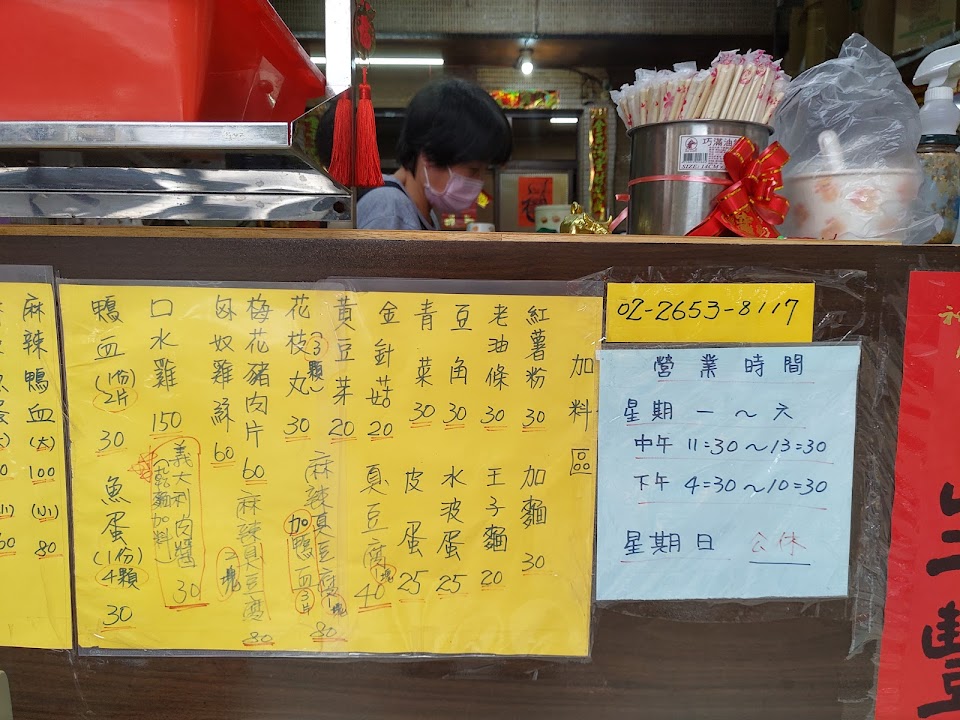 加料區
紅薯粉 30
加麵 30
老油條 30
王子麵 20
豆角 30
水波蛋 25
青菜 30
皮蛋 25
金針菇 20
臭豆腐 40
黃豆芽 20
花枝丸(3顆) 30
麻辣臭豆腐1塊
加鴨血3片
80
梅花豬肉片 60
麻辣臭豆腐 2塊 80
匈奴雞蘇 60
口水雞 150
義大利肉醬 30
(乾麵加料)
鴨血(1份) 30
2片
魚蛋(1份) 30
4顆
麻辣鴨血(大) 100
(小) 80
02-2653-8117
營業時間
星期 一~六
中午 11:30~13:30
下午 4:30~10:30
星期日 公休
巧滿油